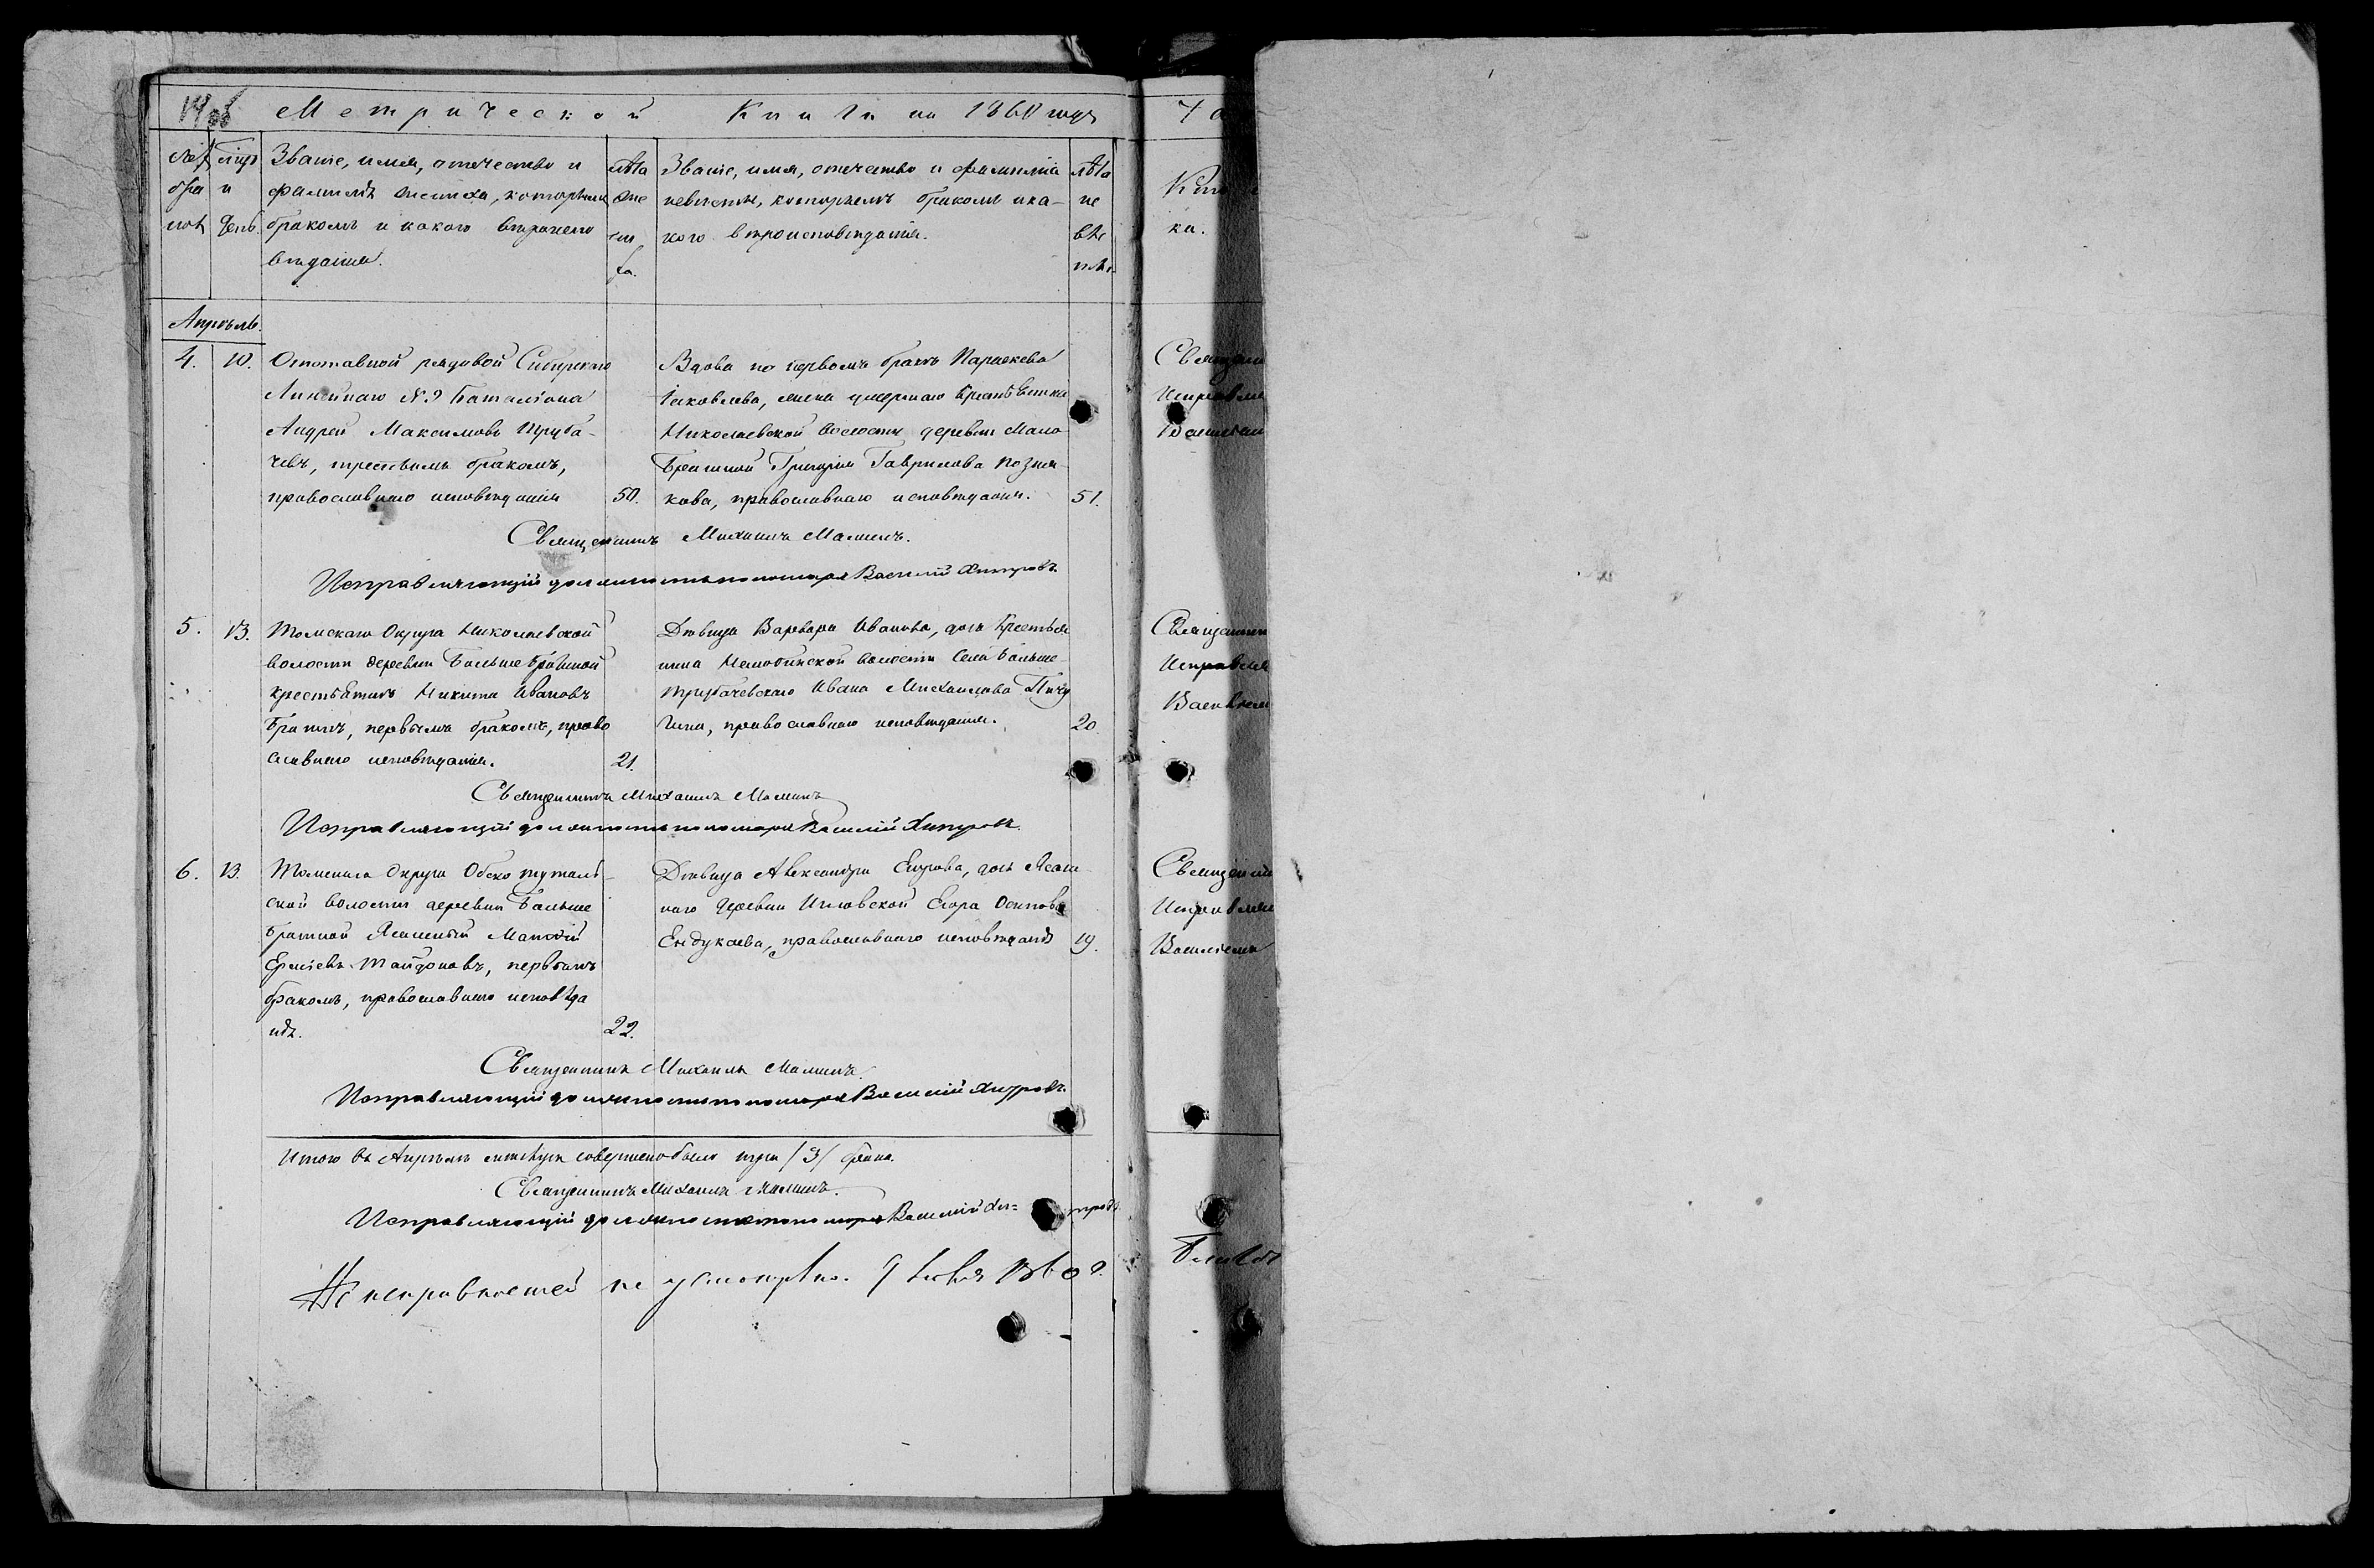 Метрической Книги на 1860 годъ
Звание, имя, отечество и
фамилія жениха, которымъ
бракомъ и какого вѣроиспо
вѣданія.
лѣта
же
ни
ха.
Звание, имя, отечество и фамилія
невѣсты, которымъ бракомъ и ка-
кого вѣроисповѣданія.
лѣта
не
вѣс
ты.
Апрѣль.
4. 10. Отставной рядовой Сибирскаго
Линейнаго № 9 Баталіона
Андрей Максимовъ Труба-
чевъ, третьимъ бракомъ,
православнаго исповѣданія 50.
Вдова по первомъ бракѣ Параскева
Іаковлева, жена умершаго крестьянина
Николаевской волости деревни Мало
Брагиной Григорія Гаврилова Позня-
кова, православнаго исповѣданія. 51.
Священникъ Михаилъ Малинъ.
Исправляющій должность пономаря Василій Хитровъ
5. 13. Томскаго Округа Николаевской
волости деревни Больше Брагиной
крестьянинъ Никита Ивановъ
первымъ бракомъ, право
славнаго исповѣданія. 21.
Дѣвица Варвара Иванова, дочь Крестья
нина волости Села Больше
трубачевскаго Ивана Михаилова Пичу
гина, православнаго исповѣданія. 20.
Священникъ Михаилъ Малинъ
Исправляющій должность пономаря Василій Хитровъ.
6. 13. Томскаго Округа Обско тутальъ-
ской волости деревни Больше
Ясашный
Тайдоновъ, первымъ
бракомъ, православнаго исповѣда
нія. 22.
Дѣвица Александра Егорова, дочь Ясаш
наго деревни Егора Осипова
Ендукаева, православнаго исповѣданія 19.
Священникъ Михаилъ Малинъ.
Исправляющій должность пономаря Василій Хитровъ.
Итого въ Апрѣлѣ мѣсяцѣ совершено было три /3/ брака.
Священникъ Михаилъ Малинъ.
Исправляющій должность пономаря Василій Хи= тровъ.
Неисправностей не усмотрѣно. 1860 г.